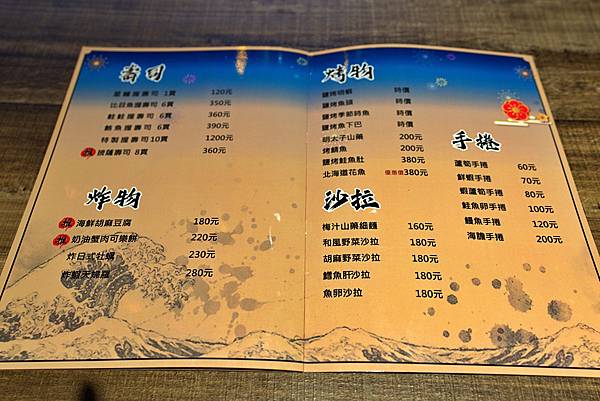 壽司
星鰻握壽司 1貫 120元
比目魚握壽司 6貫 350元
鮭魚握壽司 6貫 360元
鮪魚握壽司 6貫 390元
特製握壽司10貫 1200元
披薩壽司 8貫 360元
炸物
海鮮胡麻豆腐 180元
奶油蟹肉可樂餅 220元
炸日式牡蠣 230元
炸蝦天婦羅 280元
烤物
鹽烤明蝦 時價
鹽烤魚頭 時價
鹽烤季節時魚 時價
鹽烤魚下巴 時價
明太子山藥 200元
烤鯖魚 200元
鹽烤鮭魚肚 380元
北海道花魚 優惠價380元
沙拉
梅汁山藥細麵 160元
和風野菜沙拉 180元
胡麻野菜沙拉 180元
鱈魚肝沙拉 180元
魚卵沙拉 180元
手捲
蘆筍手捲 60元
鮮蝦手捲 70元
蝦蘆筍手捲 80元
鮭魚卵手捲 100元
鰻魚手捲 120元
海膽手捲 200元